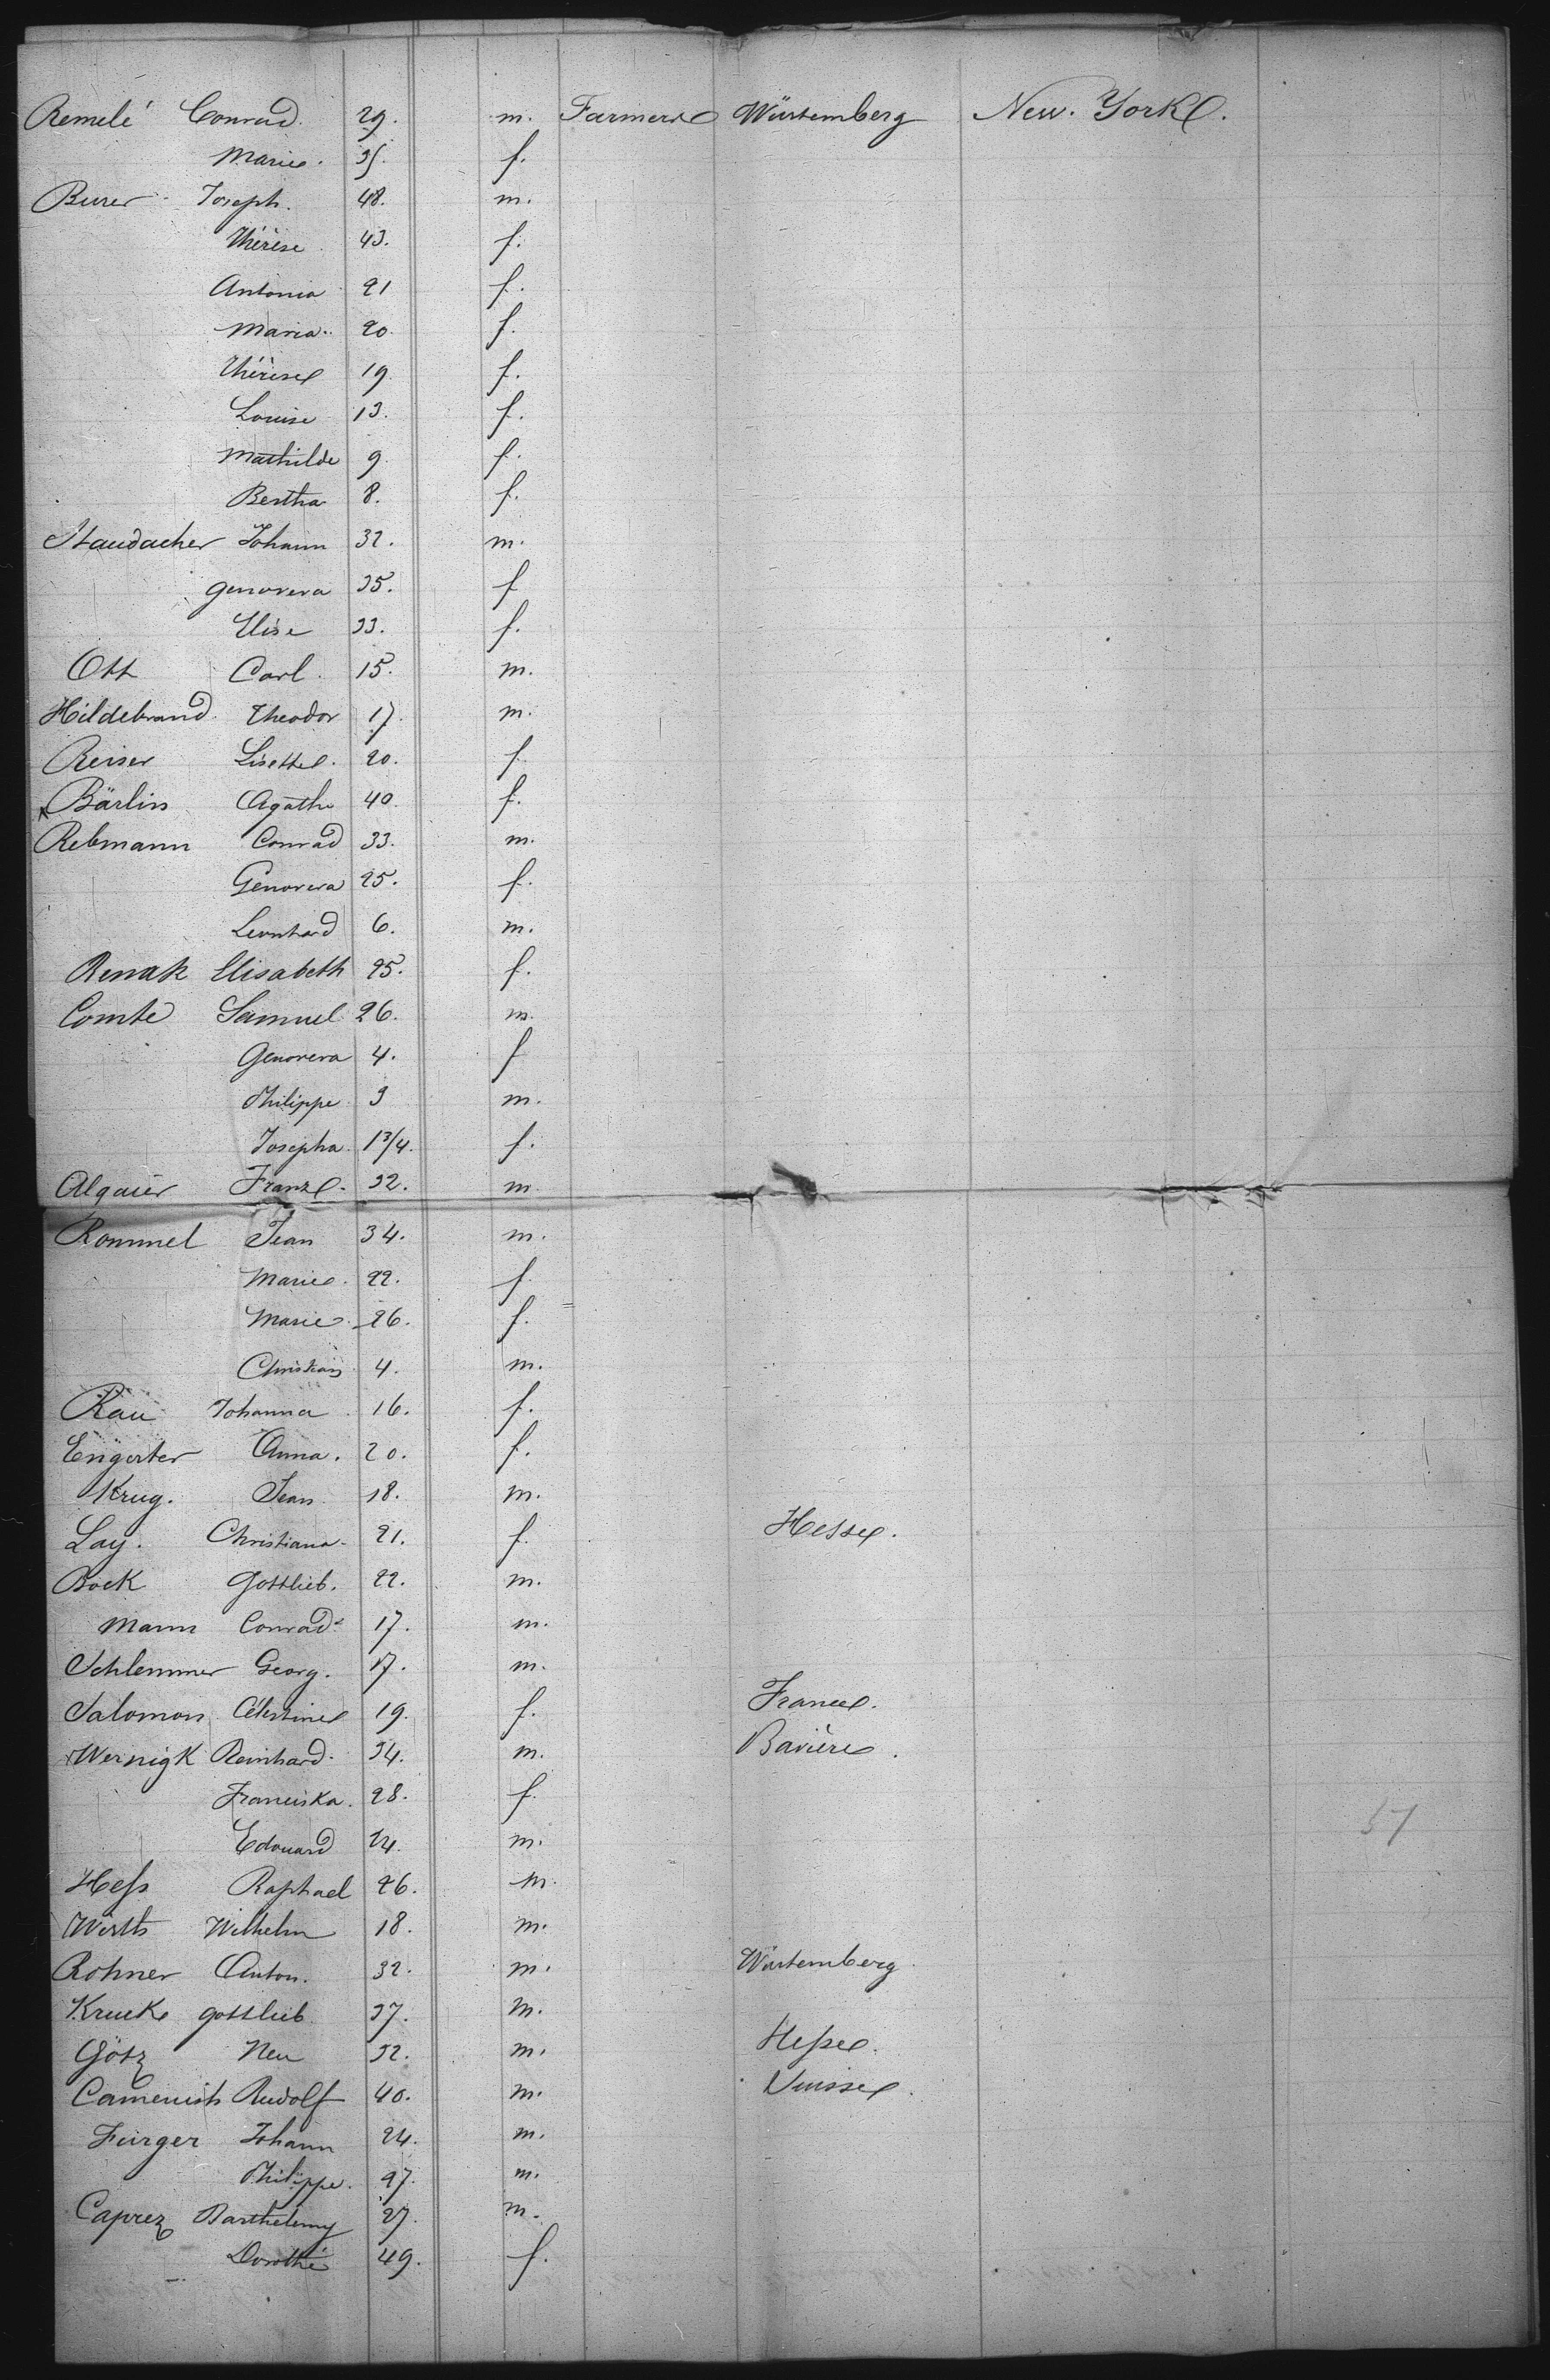 Remelé Conrad. 29. m. Farmers Würtemberg New. York.
Marie. 35. f.
Burer Joseph. 48. m.
Thérèse 43. f.
Antonia 21 f.
Maria. 20. f.
Thérèse 19 f.
Louise 13. f.
Mathilde 9. f.
Bertha 8. f.
Staudacher Johann 32. m.
Genoveva 35. f
Elise 33. f.
Ott Carl. 15. m.
Hildebrand. Theodor 17. m.
Reiser Lisette. 20. f
Bärlin Agathe 40. f.
Rebmann Conrad 33. m.
Genoveva 25. f.
Leonhard 6. m.
Remak Elisabeth 25. f.
Comte Samuel 26. m.
Genoveva 4. f
Philippe 3 m.
Josepha. 1 3/4. f.
Algaier Franz. 32. m
Rommel Jean 34. m.
Marie. 22. f.
Marie. 26. f.
Christian 4. m.
Rau Johanna 16. f.
Engerter Anna. 20. f.
Krug. Jean 18. m.
Lay. Christiana. 21. f. Hesse.
Bock Gottlieb. 22. m.
Mann Conrad. 17. m.
Schlemmer Georg. 17. m.
Salomon Célestine 19. f. France.
Wernigk Reinhard. 34. m. Bavière.
Franciska. 28. f.
Edouard 14. m.
Heß Raphael 26. m.
Wirth Wilhelm 18. m.
Rohner Anton. 32. m. Würtemberg
Krucke Gottlieb. 37. m.
Götz Neu 32. m. Heße.
Camenish Rudolf 40. m. Suisse.
Furger Johann 24. m.
Philippe. 27. m.
Caprez Barthelemy 27. m.
Dorothé 49. f.